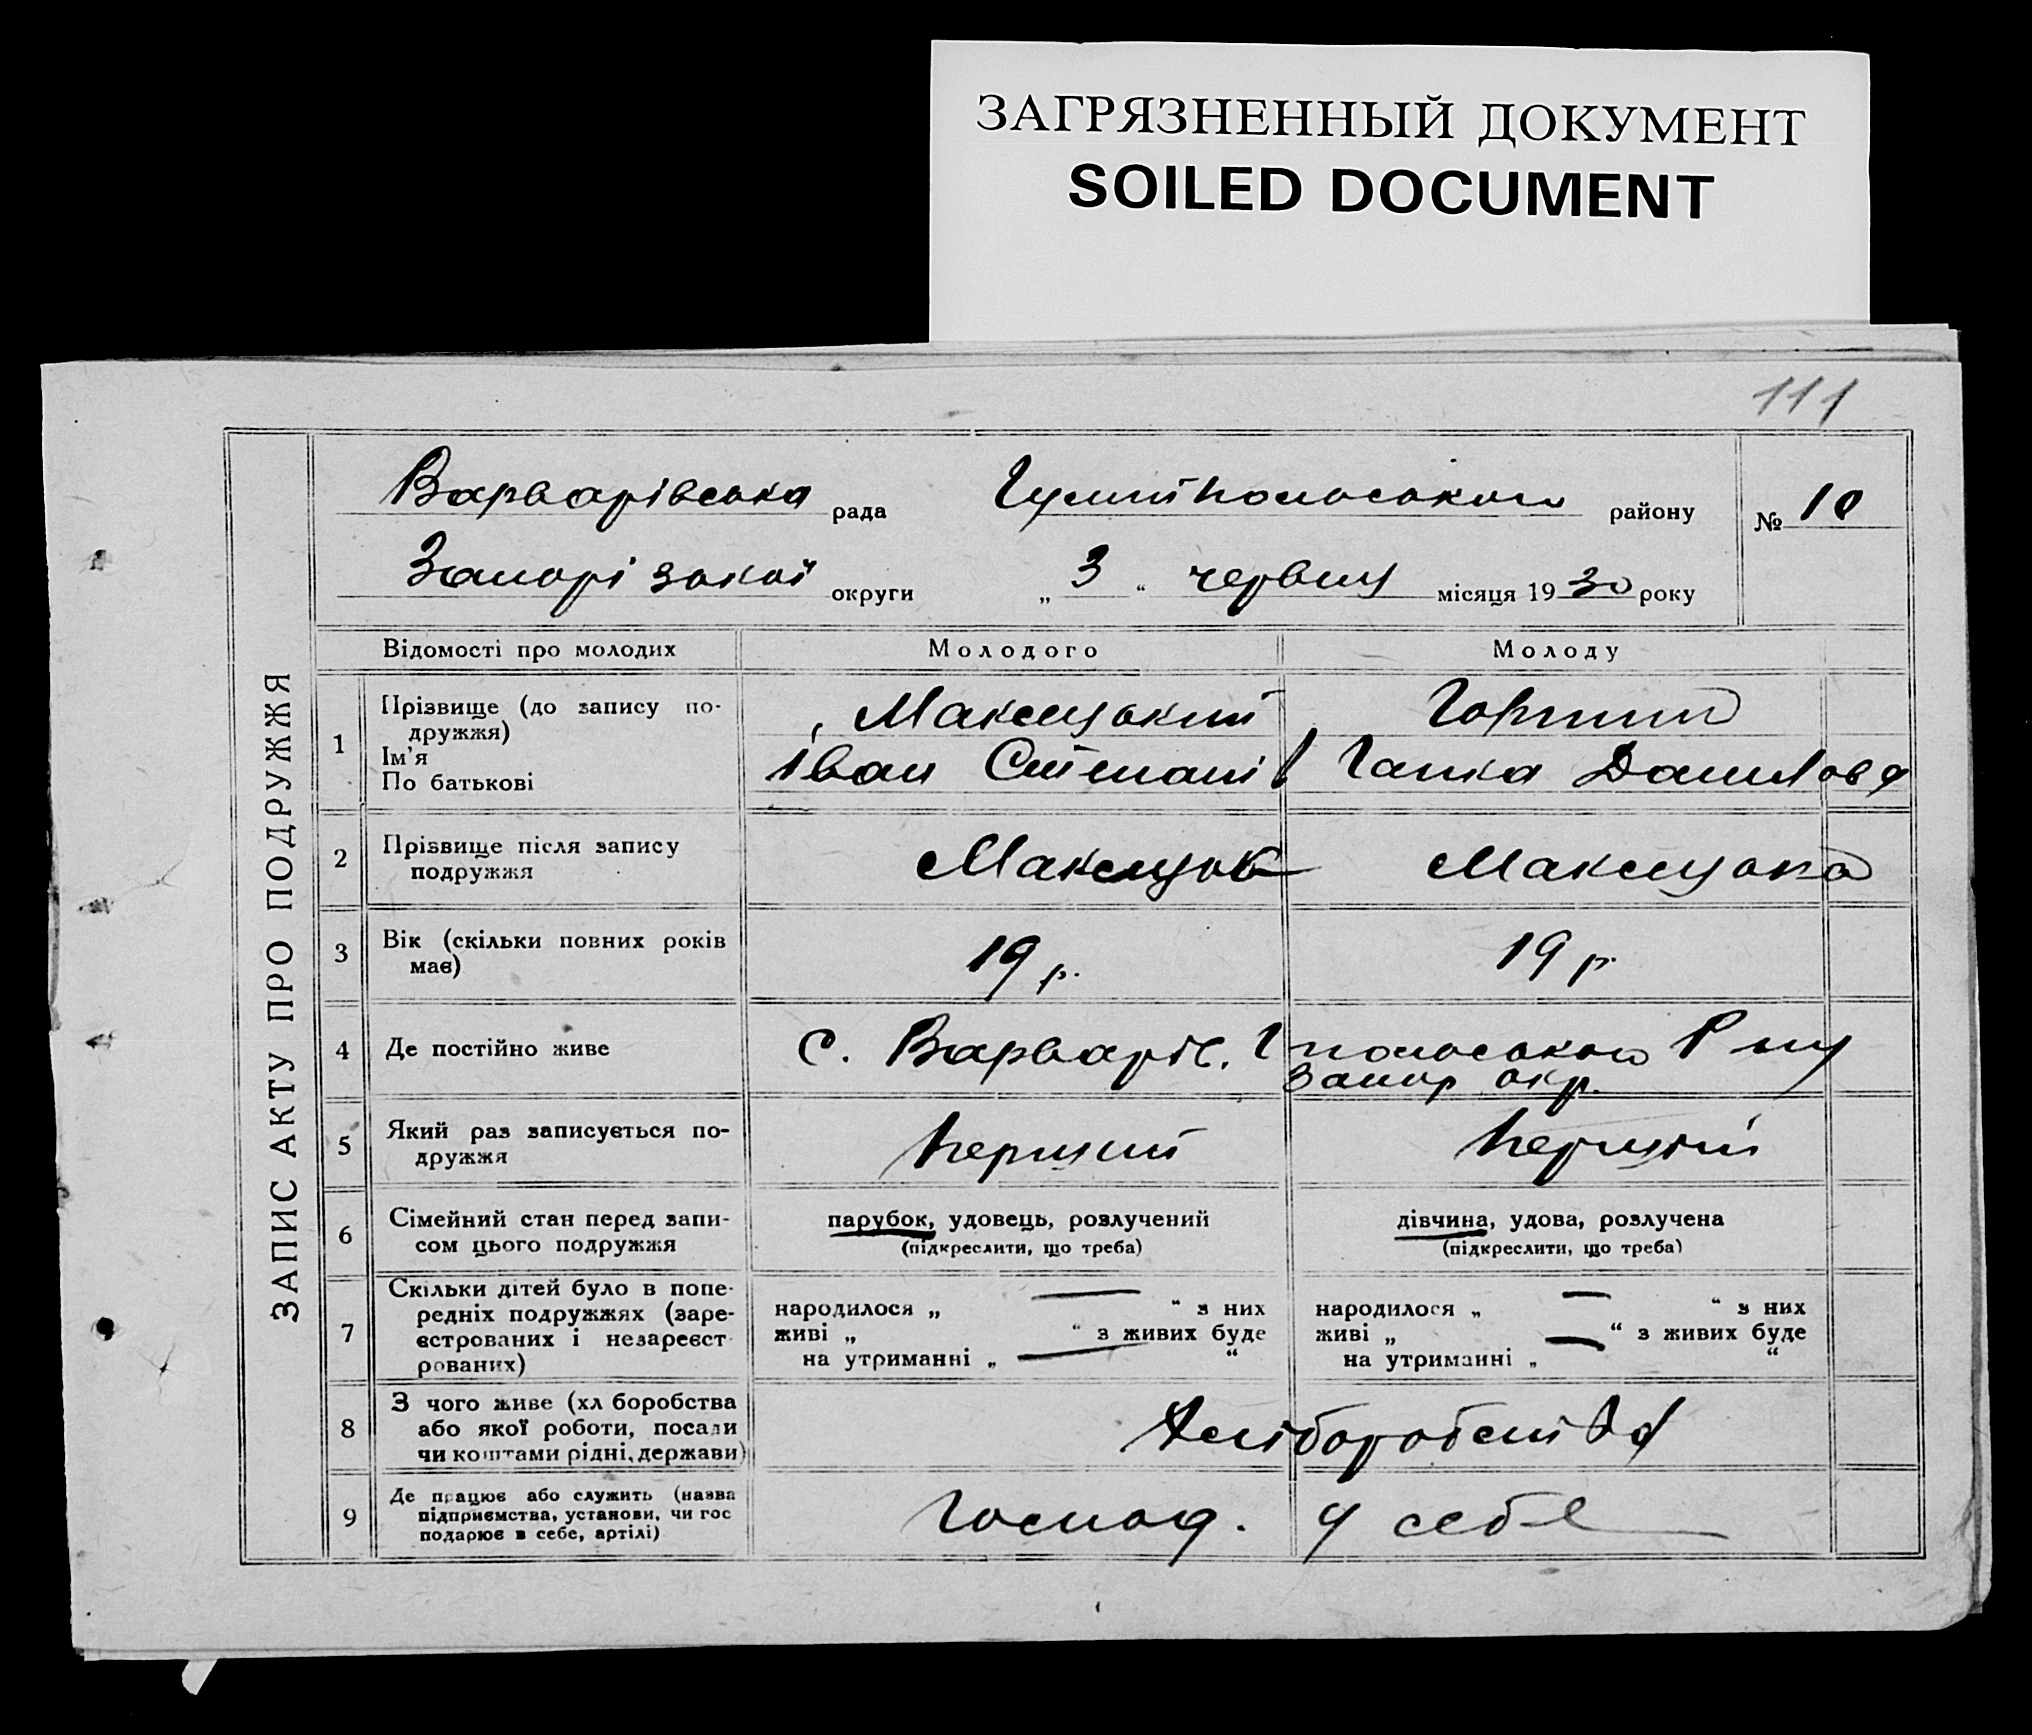 ЗАГРЯЗНЕННЫЙ ДОКУМЕНТ
SOILED DOCUMENT
111
ЗАПИС АКТУ ПРО ПОДРУЖЖЯ
Варварівська рада Гуляйпольського району № 10
Запорізької округи „ 3 “ червня місяця 1930 року
Відомості про молодих Молодого Молоду
1 Прізвище (до запису по-
дружжя)
Ім'я
По батькові
Іван Степанів Ганна Данилова
2 Прізвище після запису
подружжя
3 Вік (скільки повних років
має)
19 р. 19 р.
4 Де постійно живе с. Варварів. Гпольського Р ну
Запор окр.
5 Який раз записується по-
дружжя
перший перший
6 Сімейний стан перед запи-
сом цього подружжя
парубок, удовець, розлучений дівчина, удова, розлучена
(підкреслити, що треба) (підкреслити, що треба)
7 Скільки дітей було в попе-
редніх подружжях (заре-
єстрованих і незареєст
рованих)
народилося „ — “ з них народилося „ — “ з них
живі „ “ з живих буде живі „ — “ з живих буде
на утриманні „ — “ на утриманні „ “
8 З чого живе (хл боробства
або якої роботи, посади
чи коштами рідні, держави)
Хліборобства
9 Де працює або служить (назва
підприємства, установи, чи гос
подарює в себе, артілі)
Господ. у себе